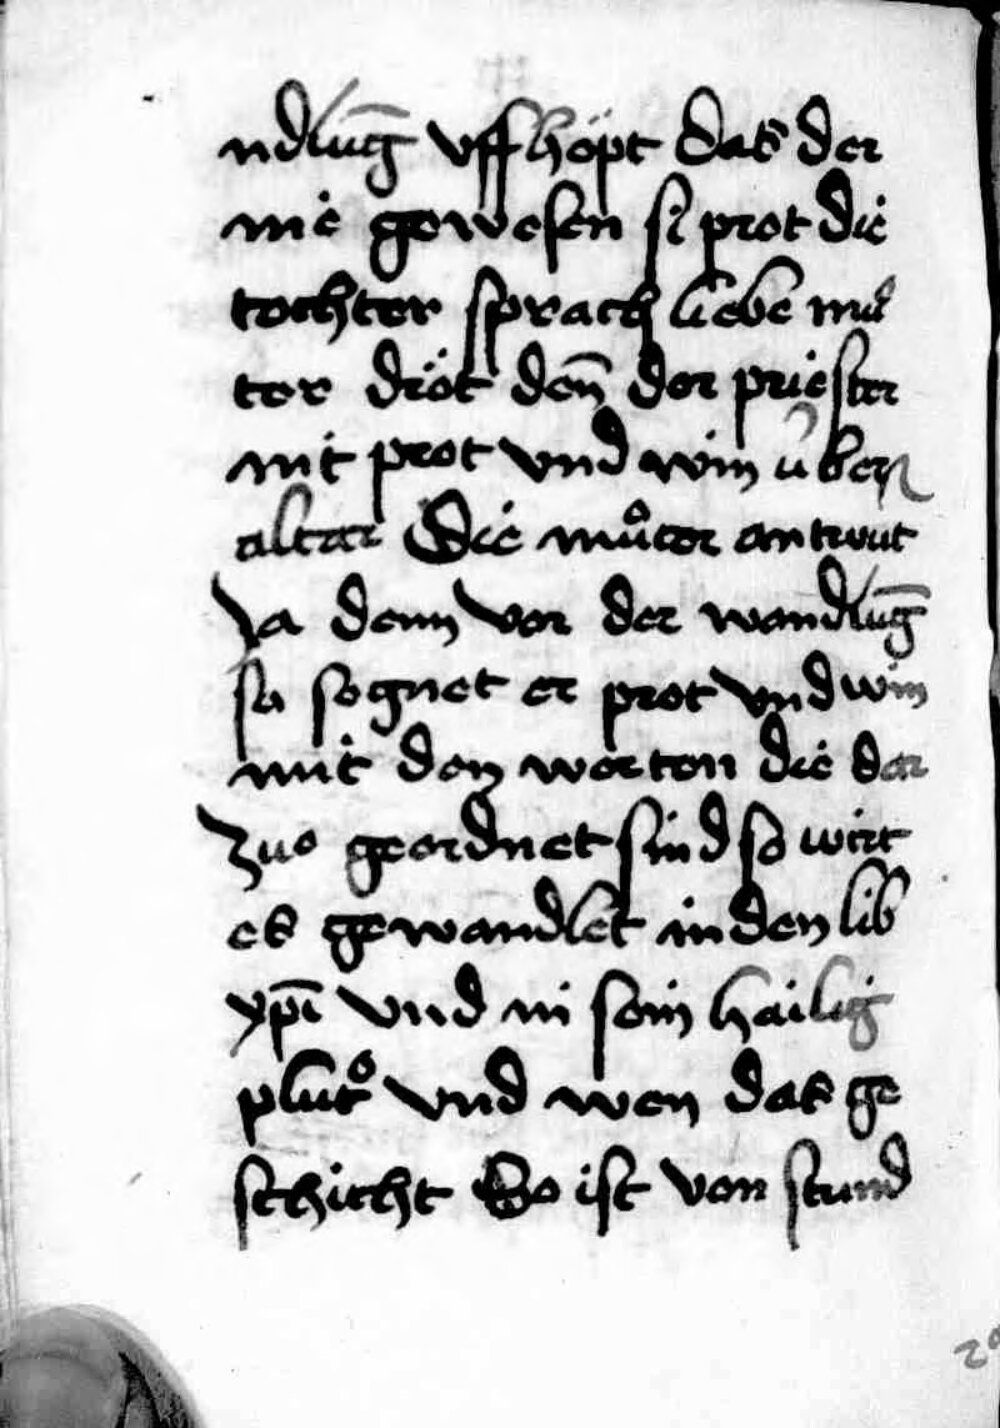 ndlūg vffhöpt das der
nie gewesen si prot die
tochter sprach liebe mů
ter dröt den̄ der priester
mit prot vnd win über
altar Die můter antwut
Ja denn vor der wandlūg
so segnet er prot vnd win
mit den worten die dar
zuo geordnet sind so wirt
es gewandlet in den lib
xp̄i vnd in sein hailig
plůt vnd wen das ge
schicht So ist von stund